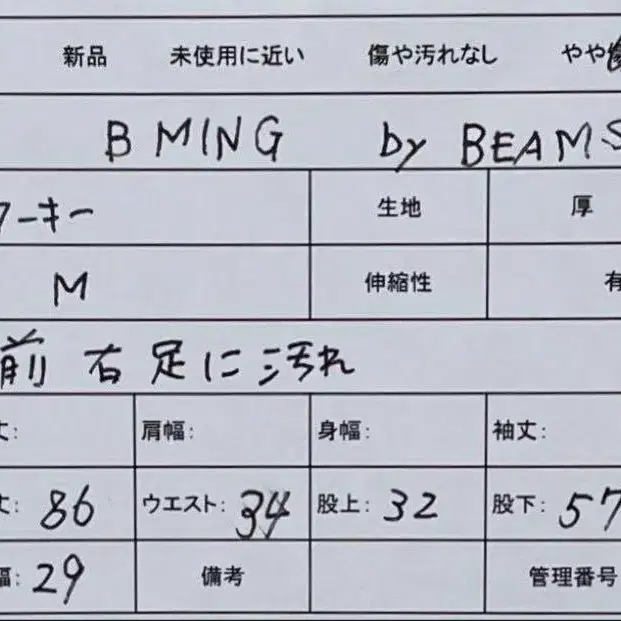 新品 未使用に近い 傷や汚れなし やや
B MING by BEAMS
ーキー 生地 厚
M 伸縮性 有
前 右 足に 汚れ
丈: 肩幅: 身幅: 袖丈:
丈: 86 ウエスト: 34 股上: 32 股下: 57
幅: 29 備考 管理番号